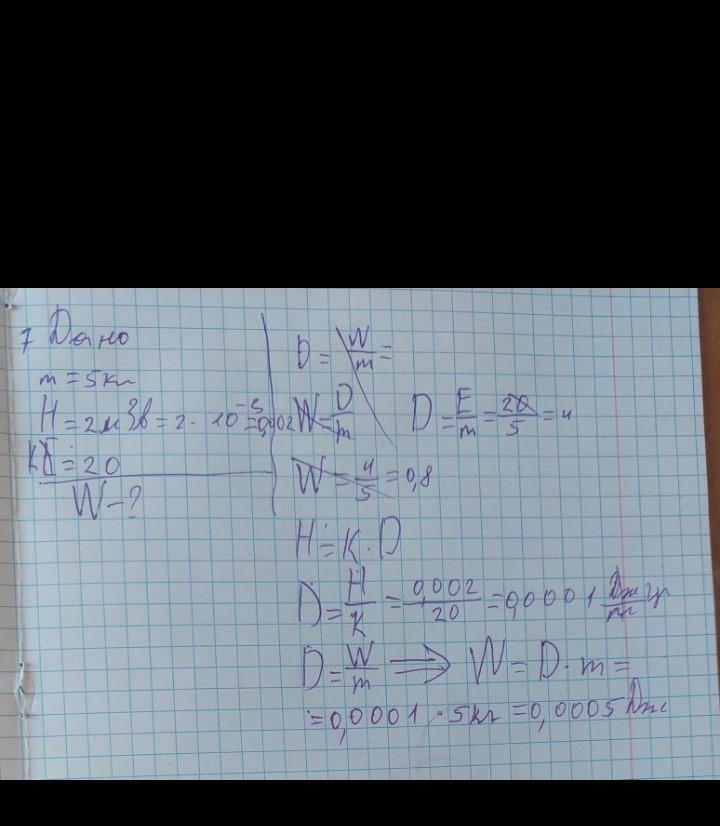 7 Дано
m = 5 кг
H = 2 м Зв = 2 · 10⁻³ = 0,002
K = 20
W - ?
D = W/m =
W = D/m
D = E/m = 20/5 = 4
W = 4/5 = 0,8
H = K · D
D = H/K = 0,002/20 = 0,0001 Дж/кг
D = W/m ⟹ W = D · m =
= 0,0001 · 5 кг = 0,0005 Дж